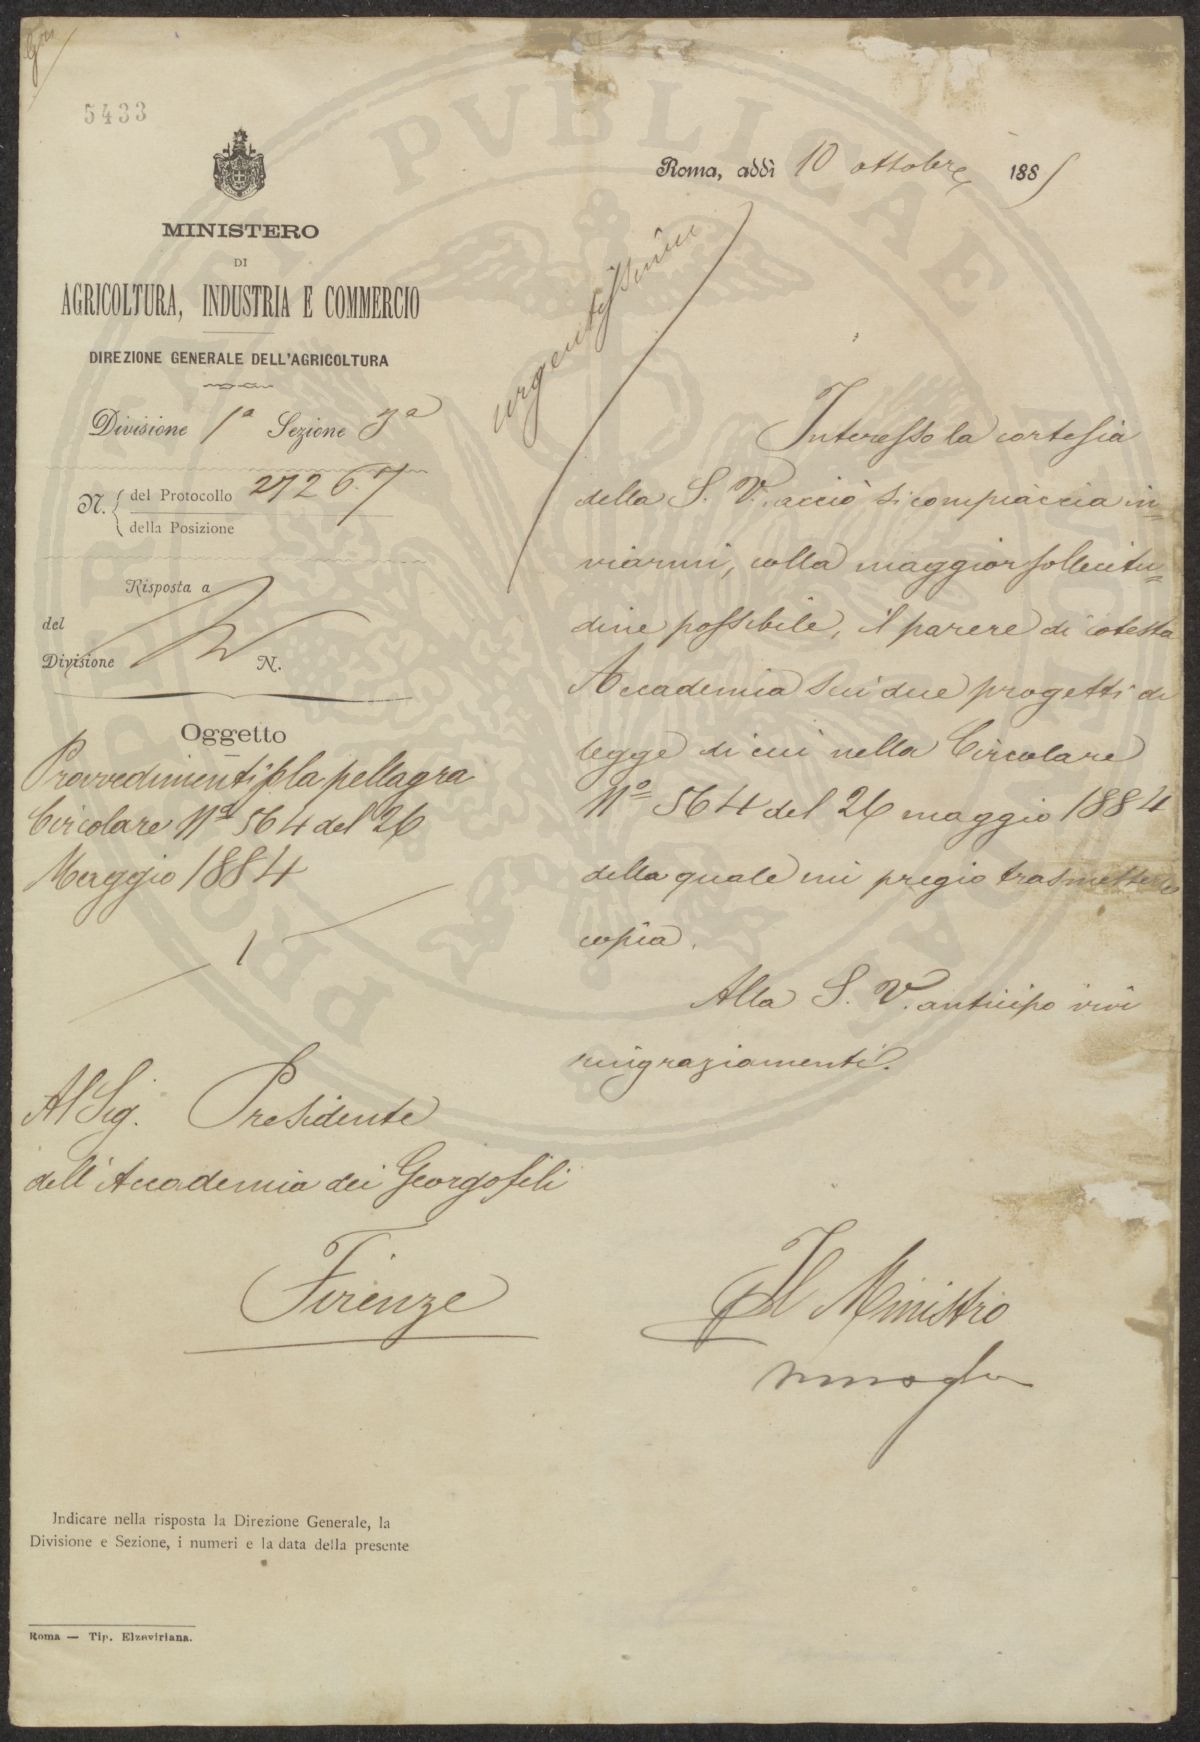 5433
MINISTERO
DI
AGRICOLTURA, INDUSTRIA E COMMERCIO
DIREZIONE GENERALE DELL'AGRICOLTURA
Divisione 1ª Sezione 3ª
N. del Protocollo 27267
della Posizione
Risposta a
del
Divisione N.
Oggetto
Provvedimenti p la pellagra
Circolare Nº 564 del 26
Maggio 1884
1
Al Sig. Presidente
dell'Accademia dei Georgofili
Firenze
Indicare nella risposta la Direzione Generale, la
Divisione e Sezione, i numeri e la data della presente
Roma — Tip. Elzeviriana.
Roma, addì 10 ottobre 1885
urgentissima
Interesso la cortesia
della S. V. acciò si compiaccia in=
viarmi, colla maggior sollecitu=
dine possibile, il parere di cotesta
Accademia sui due progetti di
legge di cui nella Circolare
Nº 564 del 26 maggio 1884
della quale mi pregio trasmetterle
copia.
Alla S. V. anticipo vivi
ringraziamenti.
Il Ministro
PROSPERITATI PVBLICAE AVGENDAE